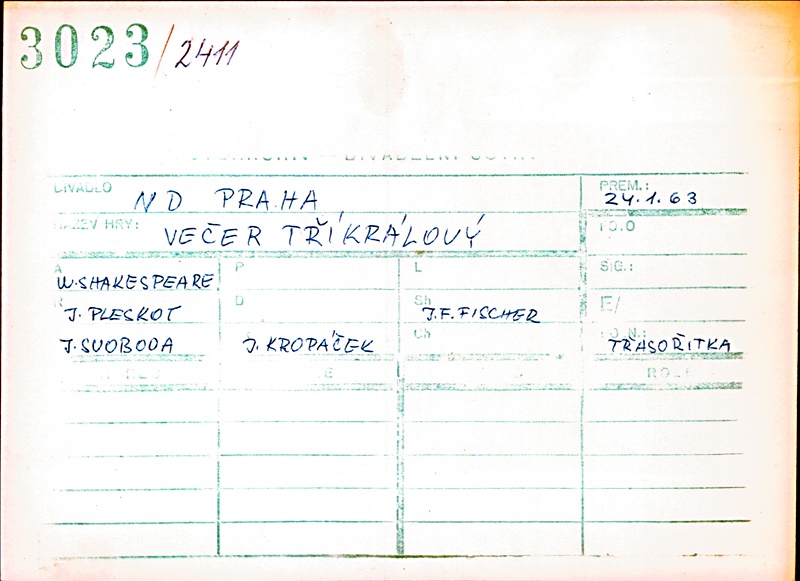 3023/2411
DIVADLO ND PRAHA PREM.: 24.1.63
NÁZEV HRY: VEČER TŘÍKRÁLOVÝ
A W. SHAKESPEARE P L SIG.:
R J. PLESKOT D Sh J.F. FISCHER E/
J. SVOBODA J. KROPÁČEK Ch TŘASOŘITKA